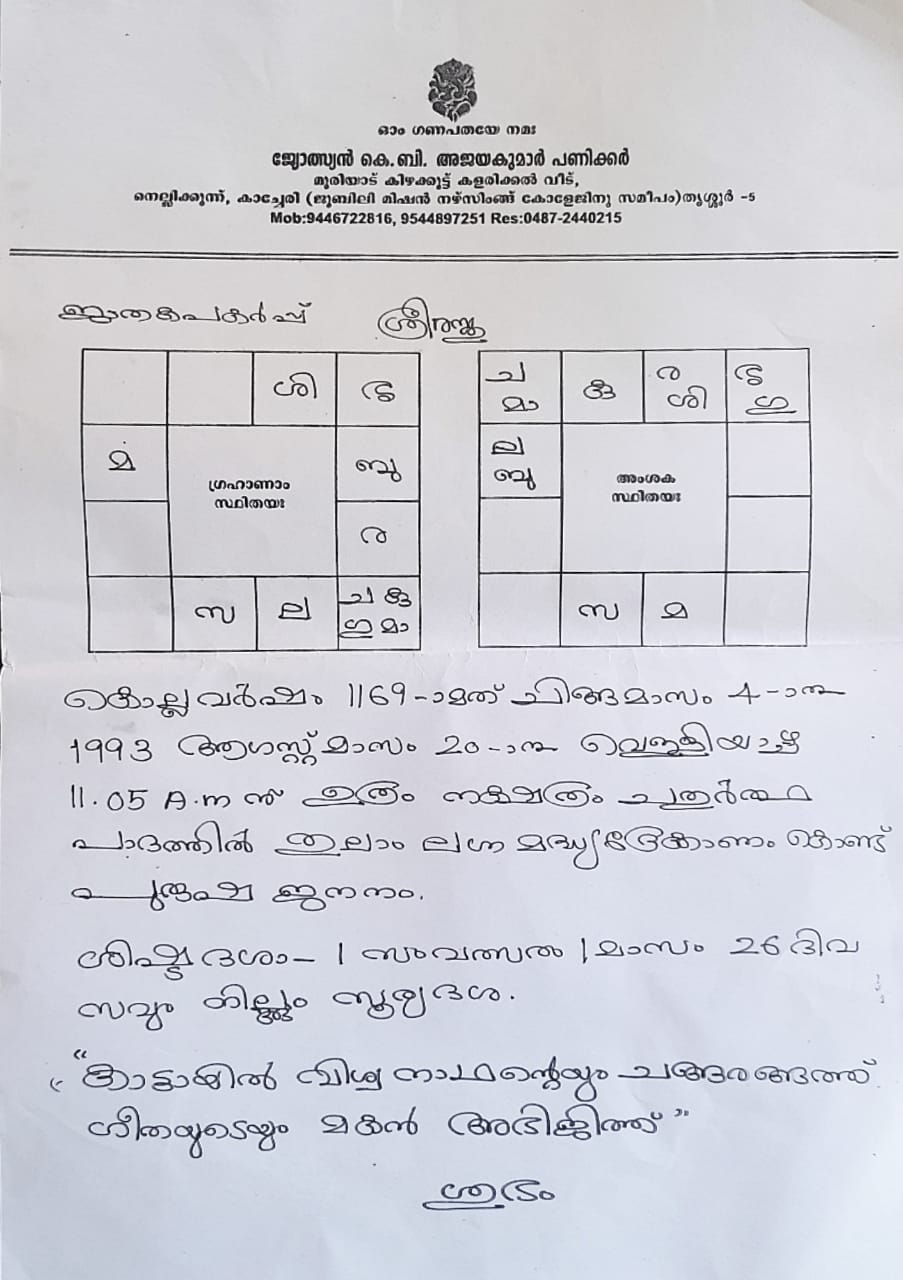 ഓം ഗണപതയേ നമഃ
ജ്യോത്സ്യൻ കെ.ബി. അജയകുമാർ പണിക്കർ
മുരിയാട് കിഴക്കൂട്ട് കളരിക്കൽ വീട്,
നെല്ലിക്കുന്ന്, കാച്ചേരി (ജൂബിലി മിഷൻ നഴ്സിംങ്ങ് കോളേജിനു സമീപം)തൃശ്ശൂർ -5
Mob:9446722816, 9544897251 Res:0487-2440215
ജാതകപകർപ്പ്
ശി ശു
മ
ബു
ഗ്രഹാണാം
സ്ഥിതയഃ
ര
സ ല ച കു
ഗു മാ
ച മാ
കു
ര ശി
ശു ഗു
ല ബു
അംശക
സ്ഥിതയഃ
സ മ
കൊല്ലവർഷം 1169-ാമത് ചിങ്ങമാസം 4-ാനു
1993 ആഗസ്റ്റ്മാസം 20-ാനു വെള്ളിയാഴ്ച
11.05 A.m ന് ഉത്രം നക്ഷത്രം ചതുർത്ഥ
പാദത്തിൽ തുലാം ലഗ്ന മദ്ധ്യദ്രേക്കാണം കൊണ്ട്
പുരുഷ ജനനം.
ശിഷ്ട ദശാ- 1 സംവത്സരം 1 മാസം 26 ദിവ
സവും നില്പും സൂര്യദശ.
"കാട്ടായിൽ വിശ്വനാഥന്റെയും ചങ്ങരങ്ങത്ത്
ഗീതയുടെയും മകൻ അഭിജിത്ത്"
ശുഭം